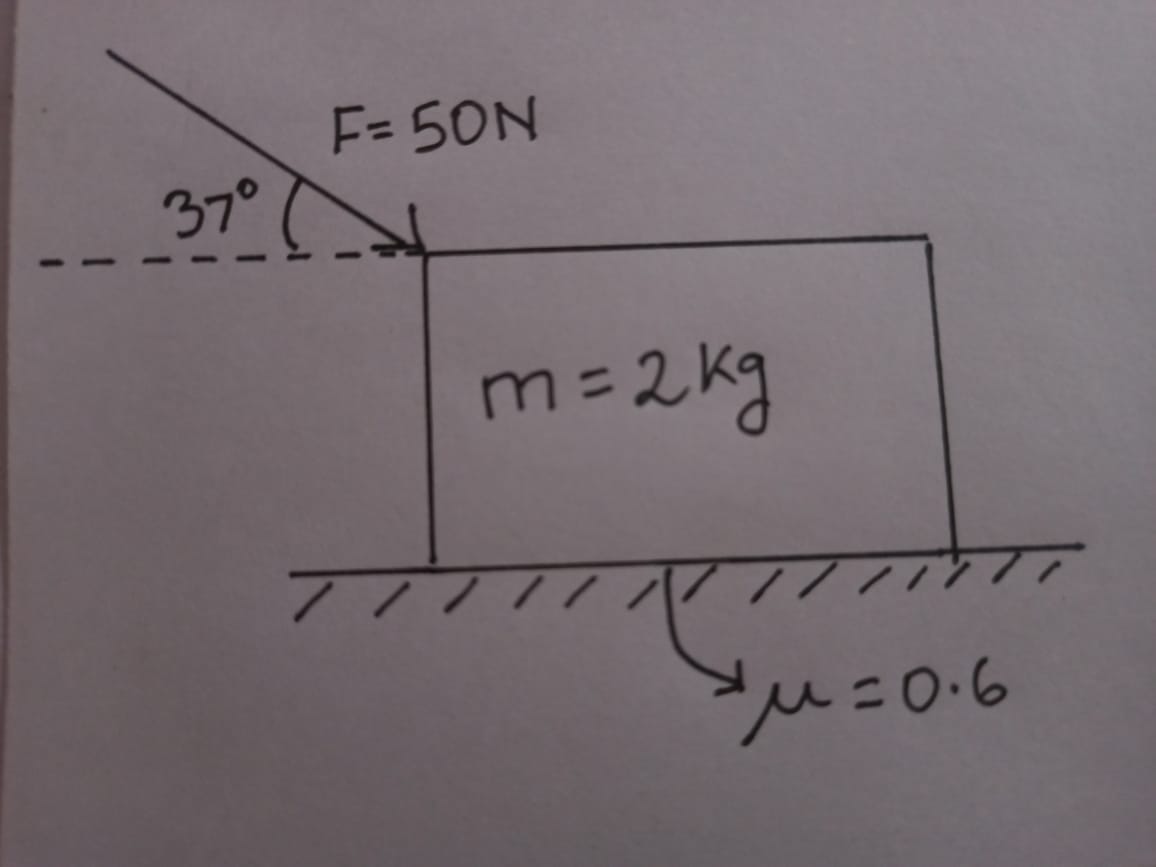 F=50N
37°
m=2kg
μ=0.6